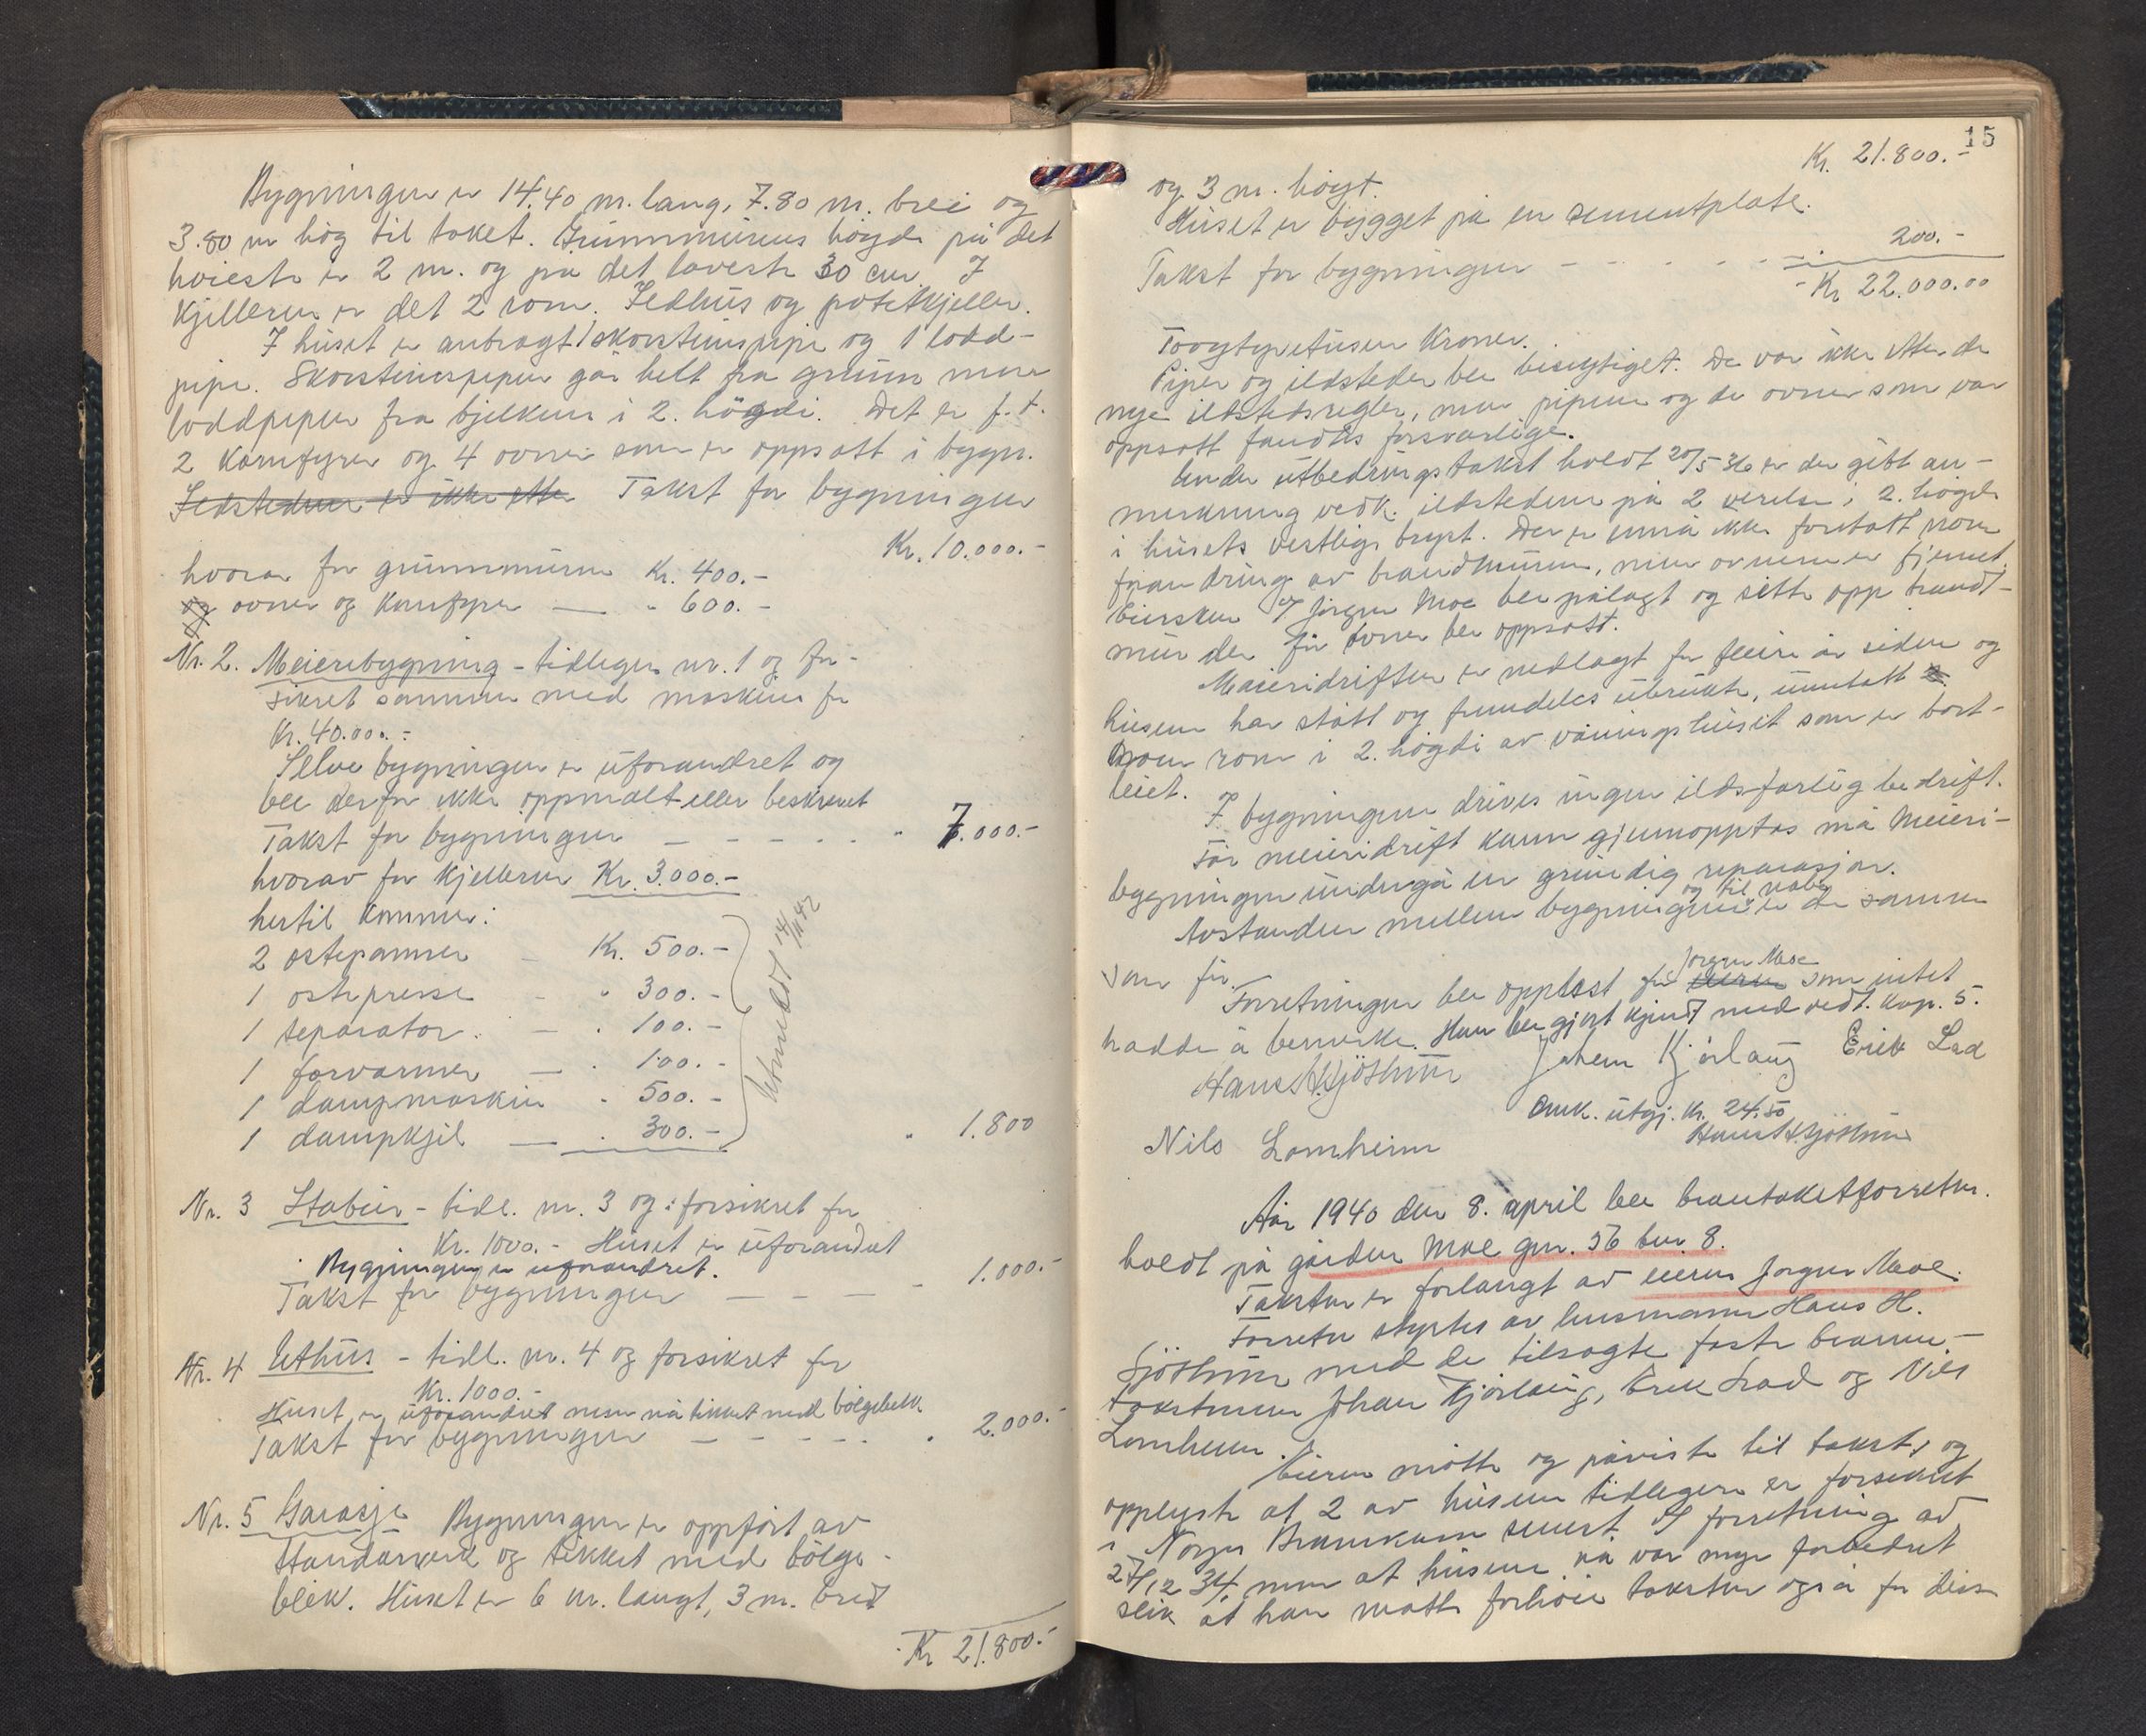 Bygningen er 14.40 m. lang, 7.80 m. brei og
3.80 m høg til taket. Grunnmurens høgde på det
høieste er 2 m. og på det laveste 30 cm. I
kjelleren er det 2 rom. Ildhus og potetkjeller.
I huset er anbragt 1 skorsteinspipe og 1 lodd-
pipe. Skorsteinspipen går helt fra grunn men
loddpipen fra bjelken i 2. høgdi. Det er f. t.
2 komfyrer og 4 ovner som er oppsatt i bygn.
Ildstedene er ikke etter Takst for bygningen
Kr. 10.000.-
hvorav for grunnmuren Kr. 400.-
og ovner og komfyrer — " 600.-
Nr. 2. Meieribygning - tidligere nr. 1 og for-
sikret sammen med maskiner for
Kr. 40.000.-
Selve bygningen er uforandret og
ble derfor ikke oppmålt eller beskrevet
Takst for bygningen — — — — " 7.000.-
hvorav for kjelleren Kr. 3.000.-
hertil kommer:
2 ostepanner — Kr. 500.-
1 ostepresse — " 300.-
1 separator — " 100.-
1 forvarmer — " 100.-
1 dampmaskin " 500.-
1 dampkjel — " 300.- " 1.800
Utmeldt 14/11 42
Nr. 3 Stabur - tidl. nr. 3 og forsikret for
Kr. 1000.- Huset er uforandret
Bygningen er uforandret.
Takst for bygningen — — — - 1.000.-
Nr. 4 Uthus - tidl. nr. 4 og forsikret for
Kr. 1000.-
Huset er uforandret men nå tekket med bølgeblekk
Takst for bygningen — — — — " 2.000.-
Nr. 5 Garasje Bygningen er oppført av
standarverk og tekket med bølge-
blek. Huset er 6 m. langt, 3 m. bred
Kr 21.800.-
15
Kr. 21.800.-
og 3 m. høgt.
Huset er bygget på en sementplate.
200.-
Takst for bygningen — — — — —
Kr 22.000.00
Toogtyvetusen Kroner.
Piper og ildsteder ble besiktiget. De var ikke etter de
nye ildstedsregler, men pipene og de ovner som var
oppsatt fandtes forsvarlige.
Under utbedringstakst holdt 20/5 36 er der gitt an-
merkning vedk. ildstedene på 2 verelse i 2. høgde
i husets vestlige bryst. Der er ennå ikke foretatt noen
forandring av brandmuren, men ovnene er fjernet.
Eiersken v/ Jørgen Moe ble pålagt og sette opp brandt-
mur der før ovner ble oppsatt.
Meieridriften er nedlagt for fleire år siden og
husene har stått og fremdeles ubrukte, unntatt
noen rom i 2. høgdi av våningshuset som er bort-
leiet.
I bygningene drives ingen ildsfarlig bedrift.
Før meieridrift kann gjennopptas må Meieri-
bygningen undergå en grundig reparasjon.
og til nabo
Avstanden mellem bygningene er de samme
som før.
Jørgen Moe
Forretningen ble opplest for eieren som intet
hadde å bemerke. Han ble gjort kjendt med vedt. kap. 5.
Hans H. Sjøthun Johan Kjørlaug Erik Lad
Omk. utgj. Kr. 24.50
Hans H. Sjøthun
Nils Lomheim
År 1940 den 8. april ble brantakstforretn.
holdt på gården Moe gnr. 56 bnr. 8.
Taksten er forlangt av eieren Jørgen Moe.
Forretn styrtes av lensmann Hans H.
Sjøthun med de tilsagte faste branne-
takstmenn Johan Kjørlaug, Erik Lad og Nils
Lomheim.
Eieren møtte og påviste til takst, og
opplyste at 2 av husene tidligere er forsikret
i Norges Brannkasse senest v/ forretning av
27/12 34 men at husene nå var mye forbedret
slik at han måtte forhøie taksten også for disse